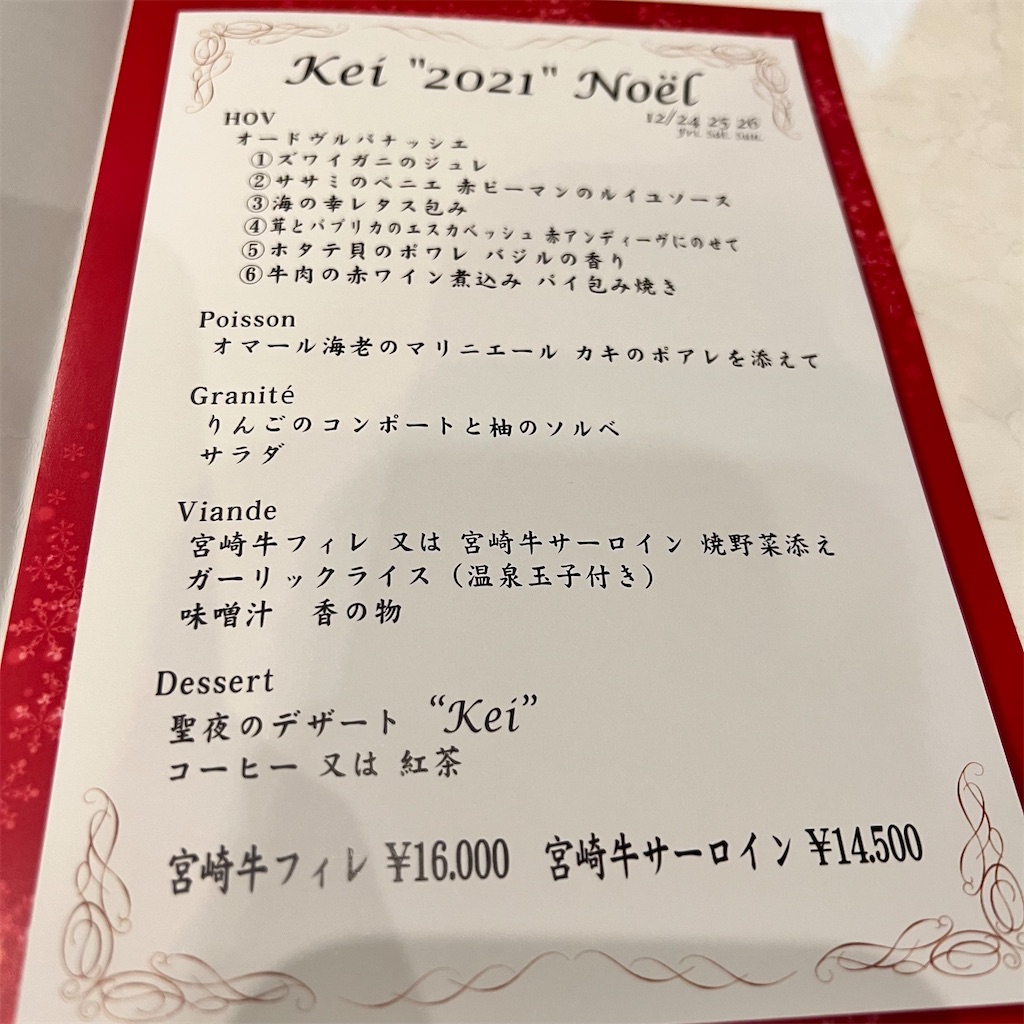 Kei "2021" Noël
12/24 25 26
Fri. Sat. Sun.
HOV
オードヴルバナッシェ
①ズワイガニのジュレ
②ササミのベニエ 赤ピーマンのルイユソース
③海の幸レタス包み
④茸とパプリカのエスカベッシュ 赤アンディーヴにのせて
⑤ホタテ貝のポワレ バジルの香り
⑥牛肉の赤ワイン煮込み パイ包み焼き
Poisson
オマール海老のマリニエール カキのポアレを添えて
Granité
りんごのコンポートと柚のソルベ
サラダ
Viande
宮崎牛フィレ 又は 宮崎牛サーロイン 焼野菜添え
ガーリックライス（温泉玉子付き）
味噌汁　香の物
Dessert
聖夜のデザート “Kei”
コーヒー 又は 紅茶
宮崎牛フィレ ¥16.000 宮崎牛サーロイン ¥14.500